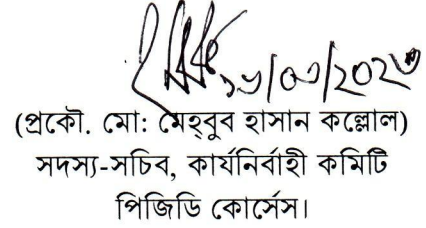 (প্রকৌ. মো: মেহ্বুব হাসান কল্লোল)
সদস্য-সচিব, কার্যনির্বাহী কমিটি
পিজিডি কোর্সেস।